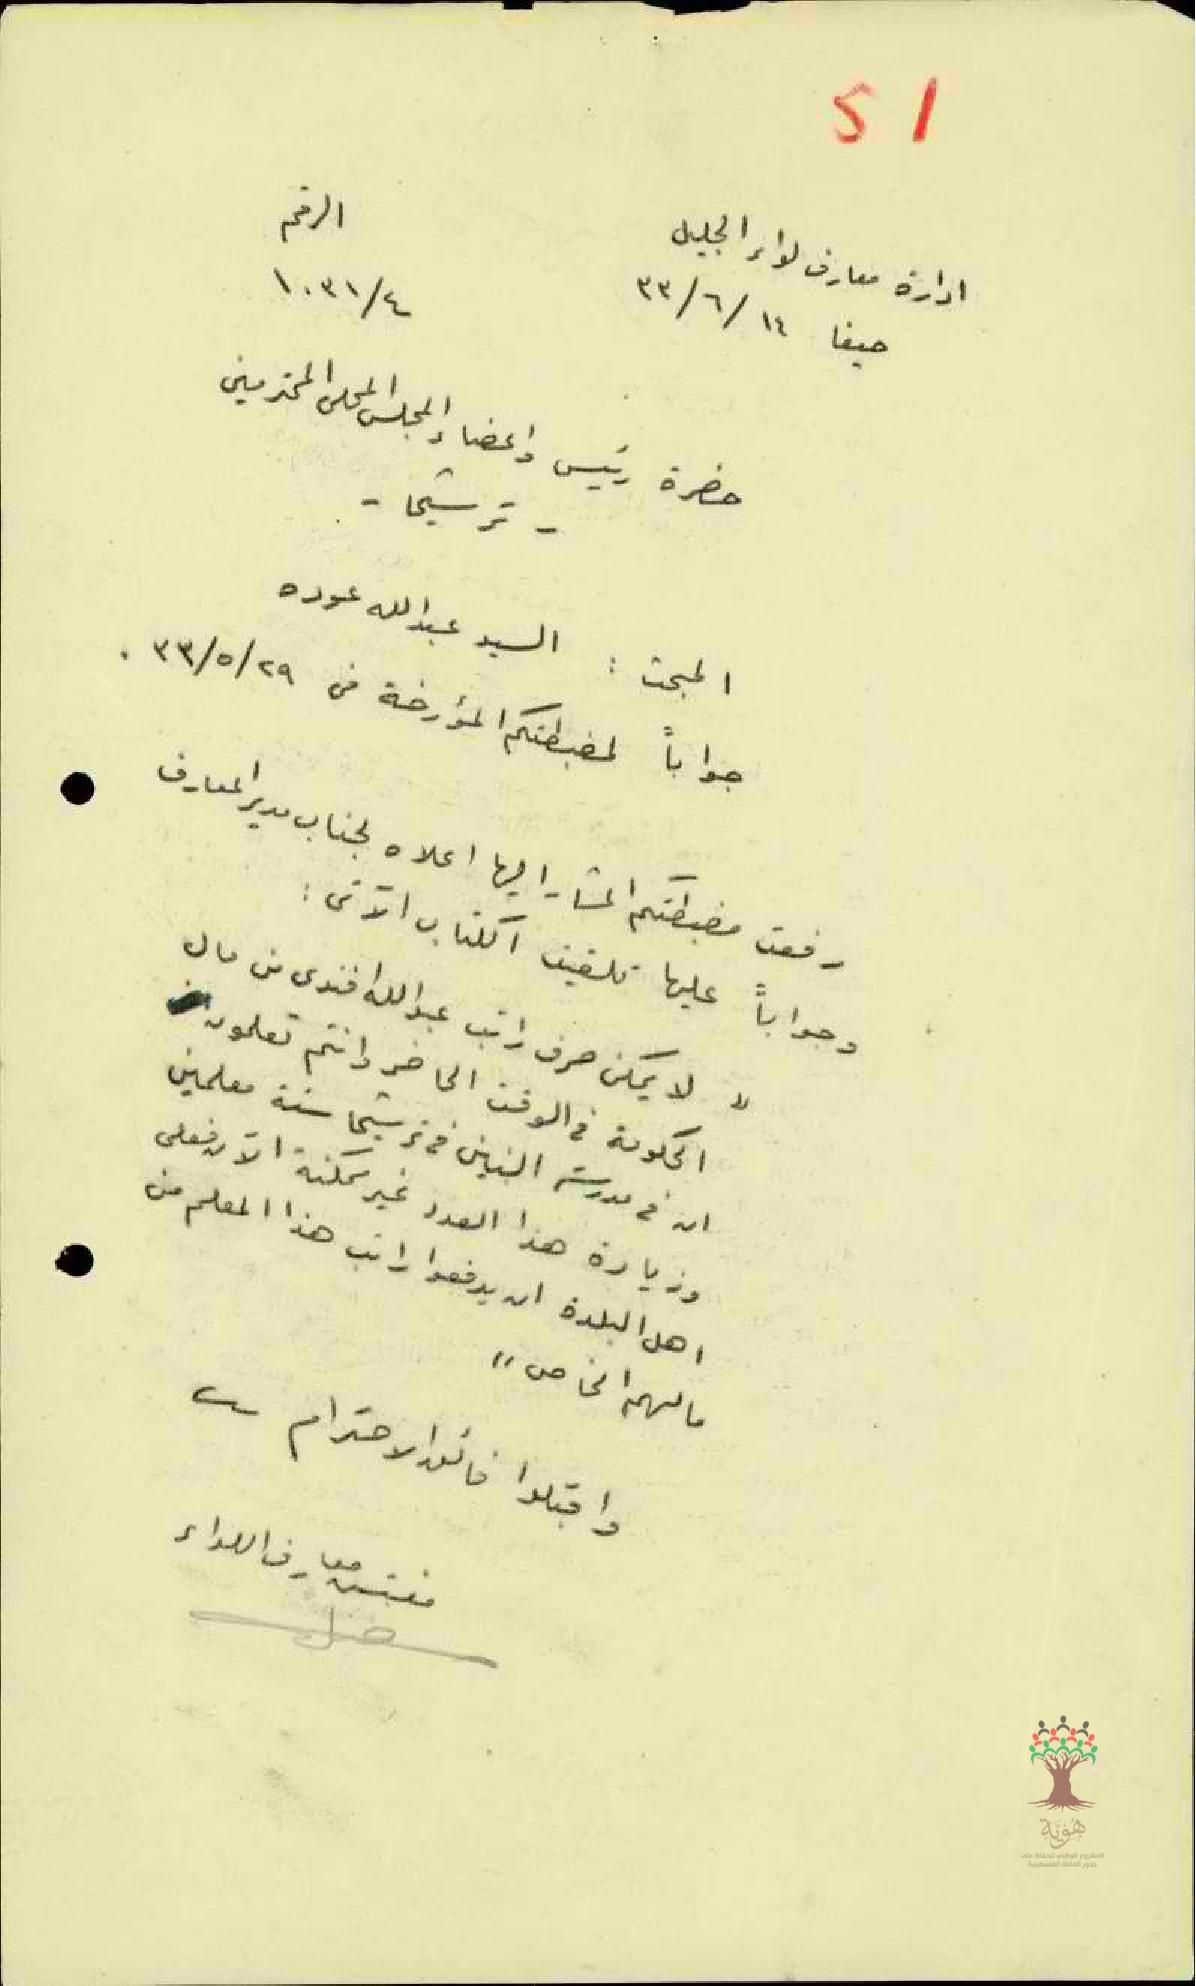 51
ادارة معارف لواء الجليل
حيفا ١٤/٦/٣٣
الرقم
١٠٣١/٤
حضرة رئيس واعضاء المجلس المحلي المحترمين
- ترشيحا -
المبحث : السيد عبدالله عوده
جواباً لمضبطتكم المؤرخة في ٢٩/٥/٣٣ .
رفعت مضبطتكم المشار اليها اعلاه لجناب مدير المعارف
وجواباً عليها تلقيت الكتاب الآتي :
" لا يمكن صرف راتب عبدالله افندي من مال
الحكومة في الوقت الحاضر وانتم تعلمون
ان في مدرسة البنين في ترشيحا ستة معلمين
وزيادة هذا العدد غير ممكنة الآن فعلى
اهل البلدة ان يدفعوا راتب هذا المعلم من
مالهم الخاص "
واقبلوا فائق الاحترام
مفتش معارف اللواء
هُوِيَّة
المشروع الوطني للحفاظ على
جذور العائلة الفلسطينية